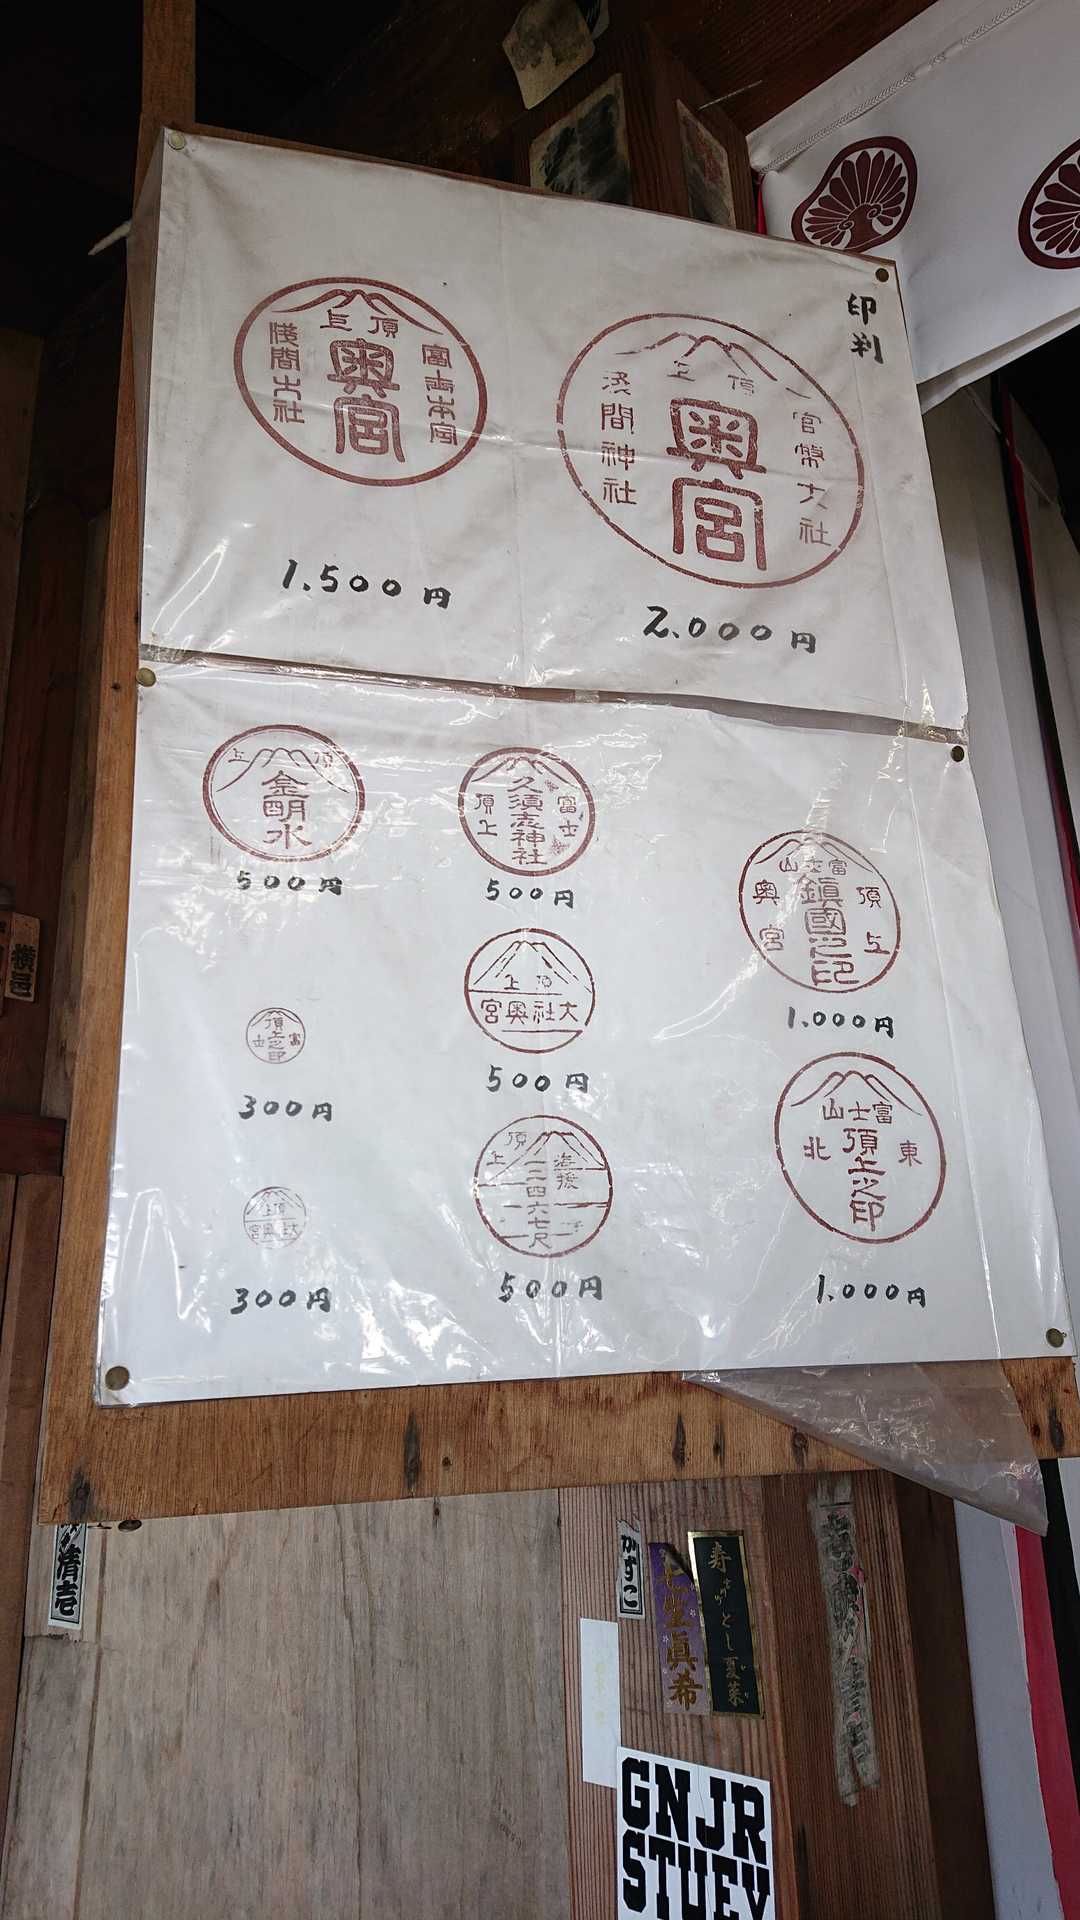 印判
頂上
奥宮
官幣大社
浅間神社
2.000円
頂上
奥宮
富士本宮
浅間大社
1.500円
頂上
金明水
500円
富士
頂上
久須志神社
500円
富士山
頂上
鎮國之印
奥宮
1.000円
富士
頂上之印
300円
頂上
大社奥宮
500円
富士山
東北
頂上之印
1.000円
頂上
大社奥宮
300円
頂上
海抜
一二四六七尺
500円
清壱
かずこ
眞希
寿
とし
夏菜
GNJR
STUEY